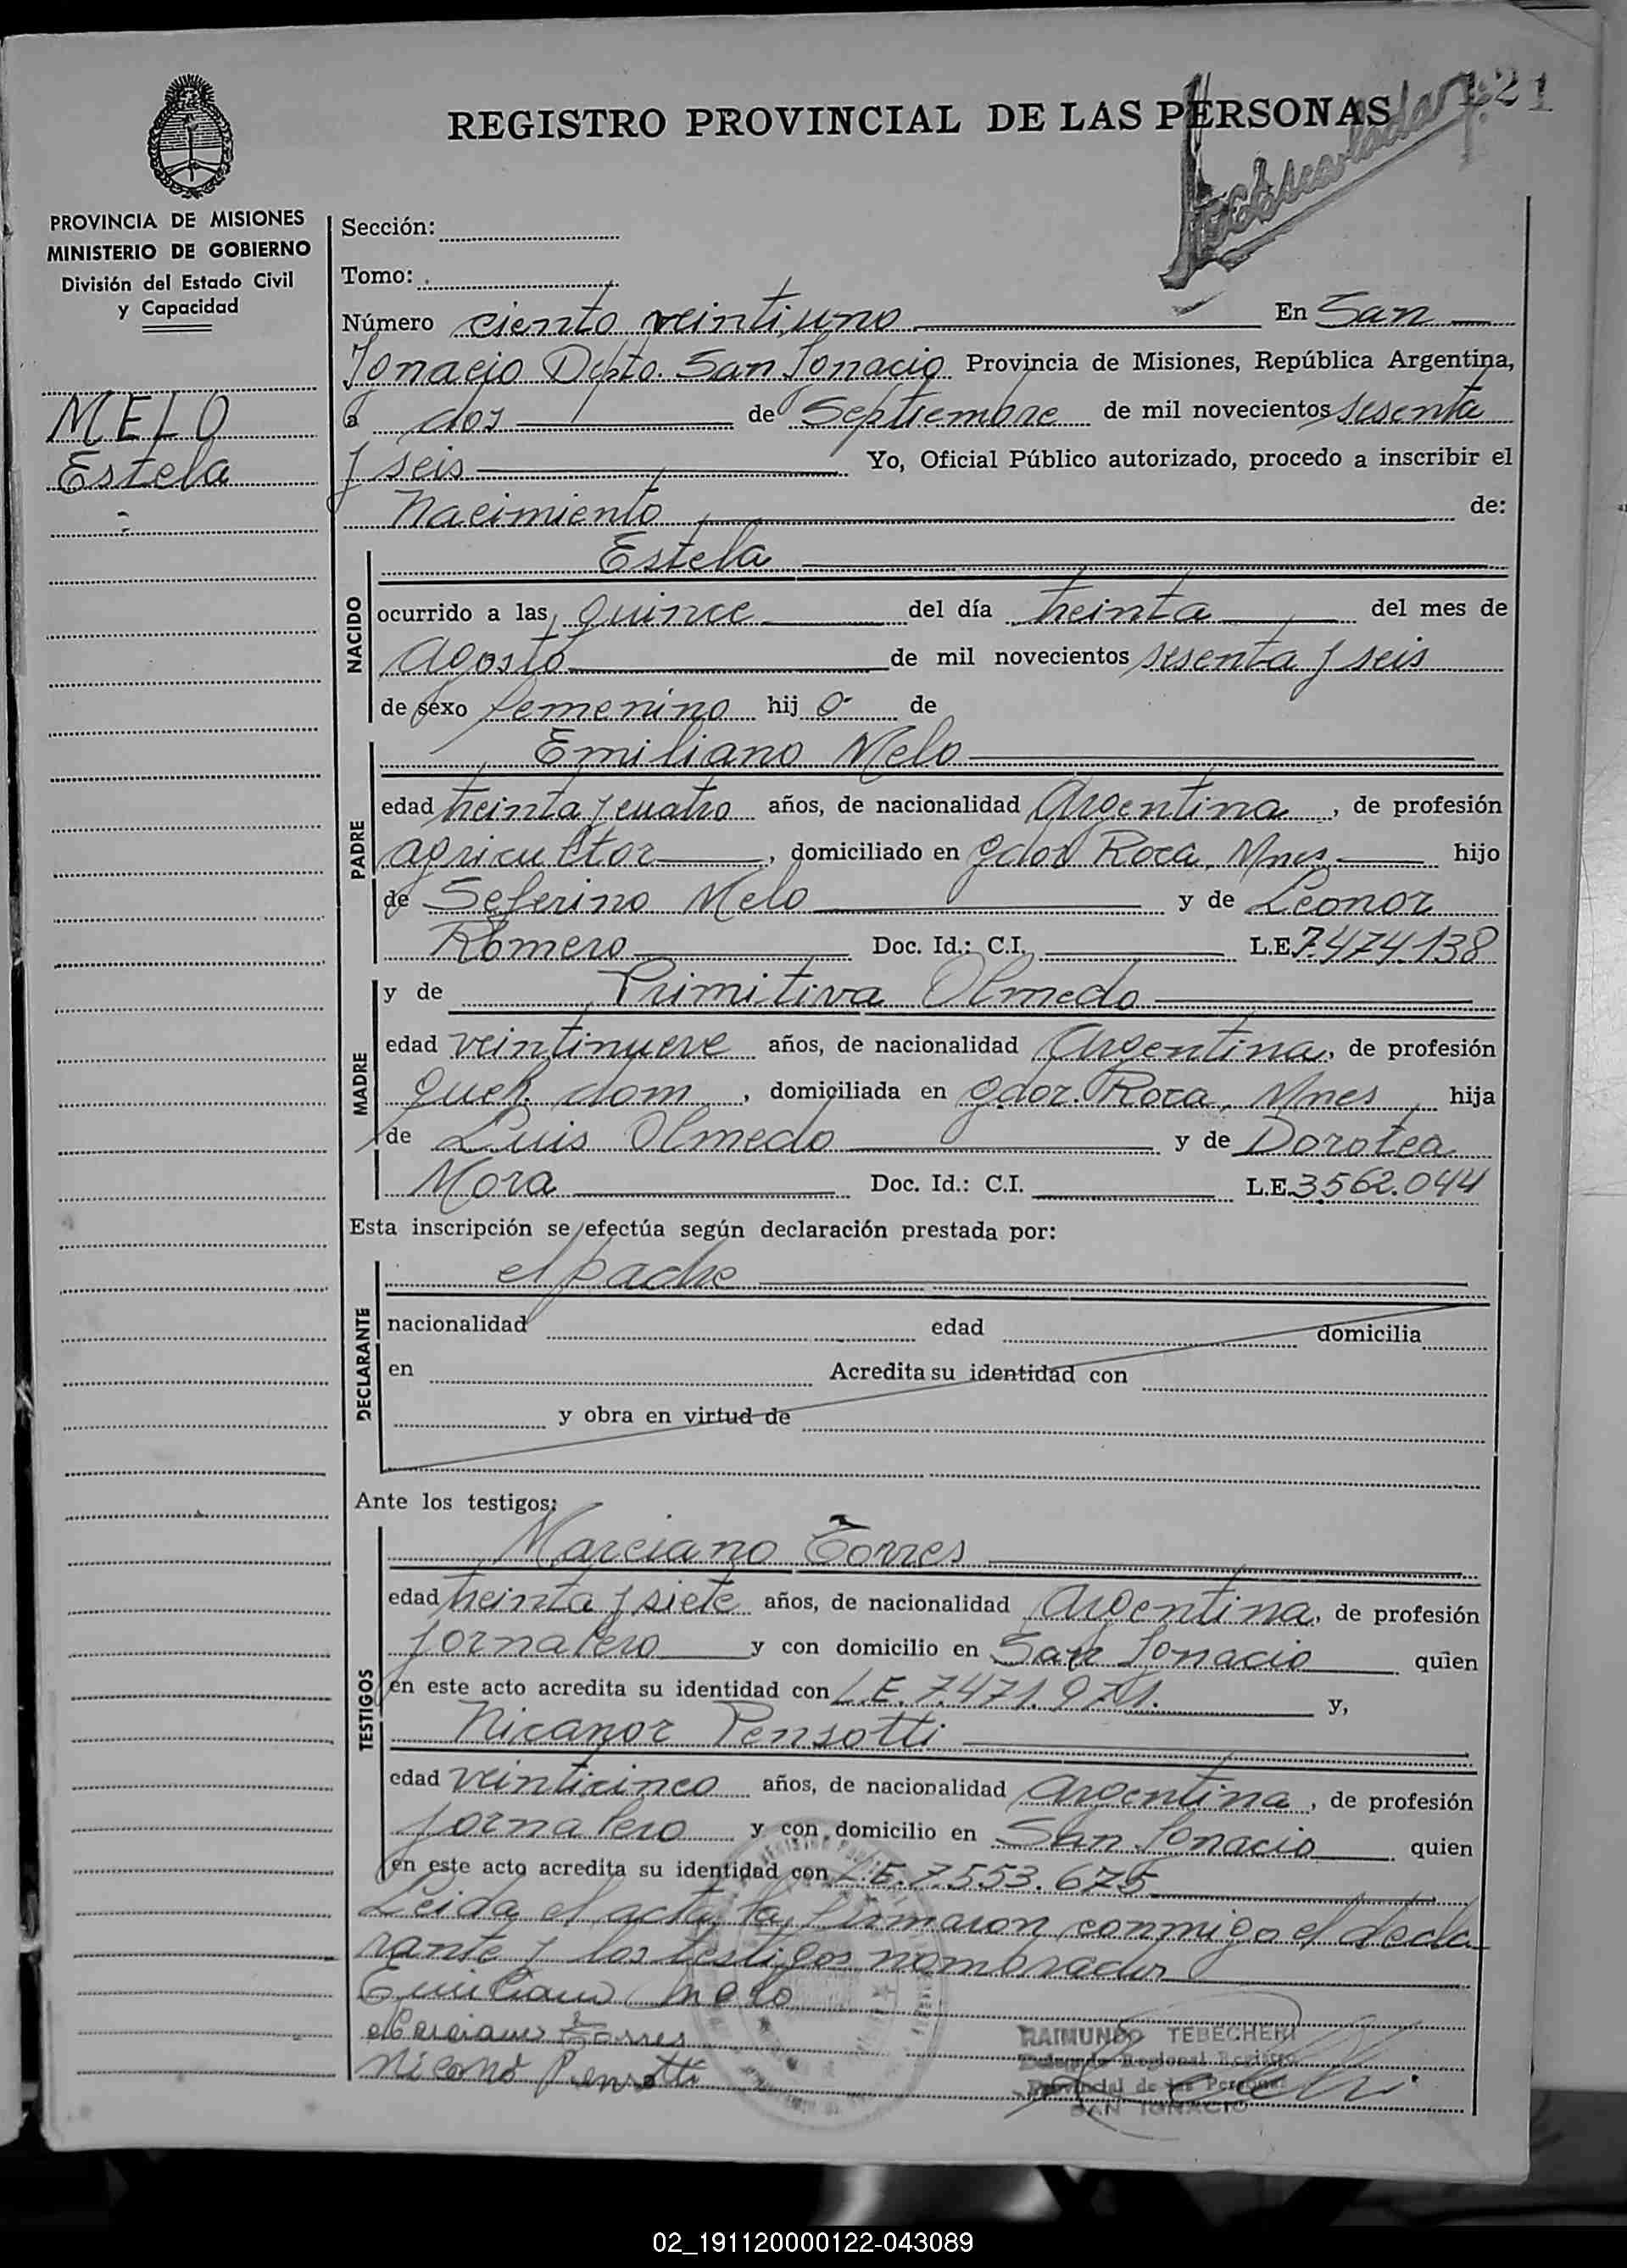 REGISTRO PROVINCIAL DE LAS PERSONAS
121
PROVINCIA DE MISIONES
MINISTERIO DE GOBIERNO
División del Estado Civil
y Capacidad
MELO
Estela
Sección:
Tomo:
Número ciento veintiuno En San
Ignacio Depto. San Ignacio Provincia de Misiones, República Argentina,
a dos de Septiembre de mil novecientos sesenta
y seis Yo, Oficial Público autorizado, procedo a inscribir el
Nacimiento de:
NACIDO
Estela
ocurrido a las quince del día treinta del mes de
Agosto de mil novecientos sesenta y seis
de sexo femenino hij a de
PADRE
Emiliano Melo
edad treinta y cuatro años, de nacionalidad Argentina, de profesión
agricultor, domiciliado en Gdor Roca, Mnes hijo
de Seferino Melo y de Leonor
Romero Doc. Id.: C.I. L.E. 7.474.138
MADRE
y de Primitiva Olmedo
edad veintinueve años, de nacionalidad Argentina, de profesión
queh. dom, domiciliada en Gdor. Roca, Mnes hija
de Luis Olmedo y de Dorotea
Mora Doc. Id.: C.I. L.E. 3.562.044
Esta inscripción se efectúa según declaración prestada por:
DECLARANTE
el padre
nacionalidad edad domicilia
en Acredita su identidad con
y obra en virtud de
Ante los testigos:
TESTIGOS
Marciano Torres
edad treinta y siete años, de nacionalidad Argentina, de profesión
jornalero y con domicilio en San Ignacio quien
en este acto acredita su identidad con L.E. 7.471.971. y,
Nicanor Pensotti
edad veinticinco años, de nacionalidad Argentina, de profesión
jornalero y con domicilio en San Ignacio quien
en este acto acredita su identidad con L.E. 7.553.675
Leida el acta, la firmaron conmigo el decla
rante y los testigos nombrados
Emiliano Melo
Marciano Torres
Nicano Pensotti
RAIMUNDO TEBECHERI
Delegado Regional Registro
Provincial de las Personas
SAN IGNACIO
02_191120000122-043089